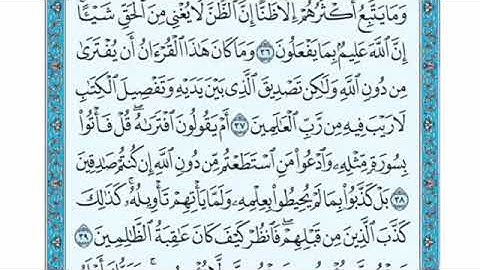 وَمَا يَتَّبِعُ أَكْثَرُهُمْ إِلَّا ظَنًّا إِنَّ ٱلظَّنَّ لَا يُغْنِى مِنَ ٱلْحَقِّ شَيْـًٔا
إِنَّ ٱللَّهَ عَلِيمٌۢ بِمَا يَفْعَلُونَ ٣٦ وَمَا كَانَ هَٰذَا ٱلْقُرْءَانُ أَن يُفْتَرَىٰ
مِن دُونِ ٱللَّهِ وَلَٰكِن تَصْدِيقَ ٱلَّذِى بَيْنَ يَدَيْهِ وَتَفْصِيلَ ٱلْكِتَٰبِ
لَا رَيْبَ فِيهِ مِن رَّبِّ ٱلْعَٰلَمِينَ ٣٧ أَمْ يَقُولُونَ ٱفْتَرَىٰهُ ۖ قُلْ فَأْتُوا۟
بِسُورَةٍ مِّثْلِهِۦ وَٱدْعُوا۟ مَنِ ٱسْتَطَعْتُم مِّن دُونِ ٱللَّهِ إِن كُنتُمْ صَٰدِقِينَ
٣٨ بَلْ كَذَّبُوا۟ بِمَا لَمْ يُحِيطُوا۟ بِعِلْمِهِۦ وَلَمَّا يَأْتِهِمْ تَأْوِيلُهُۥ ۚ كَذَٰلِكَ
كَذَّبَ ٱلَّذِينَ مِن قَبْلِهِمْ ۖ فَٱنظُرْ كَيْفَ كَانَ عَٰقِبَةُ ٱلظَّٰلِمِينَ ٣٩